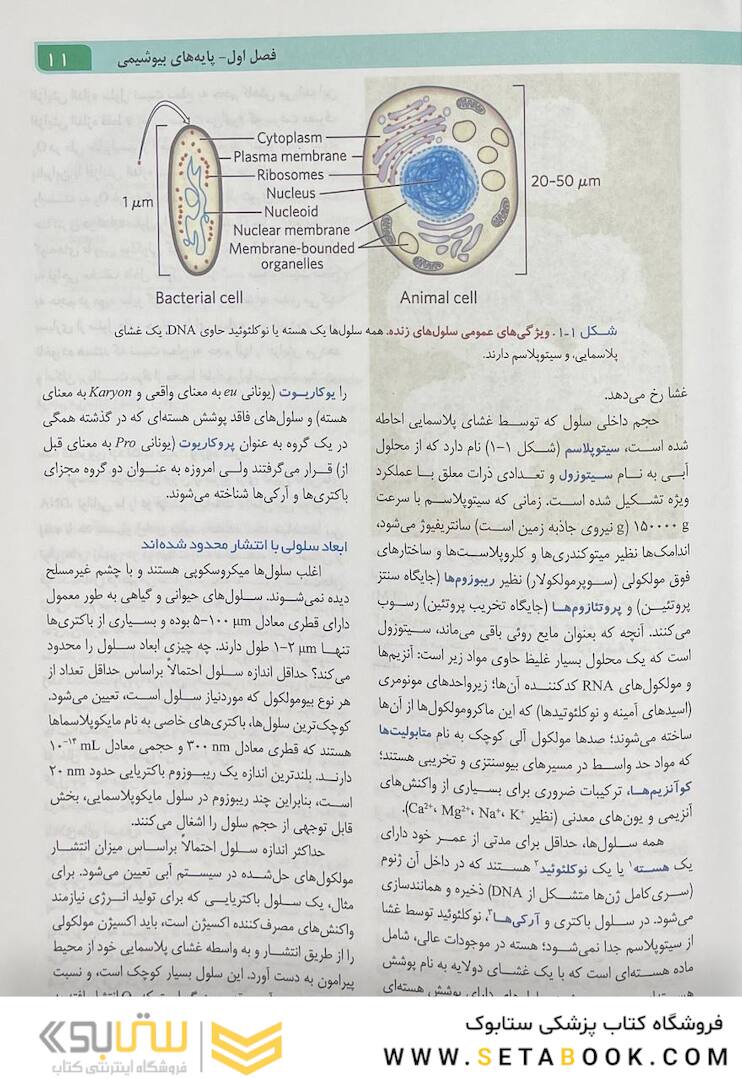 فصل اول- پایه‌های بیوشیمی
۱۱
Cytoplasm
Plasma membrane
Ribosomes
Nucleus
Nucleoid
Nuclear membrane
Membrane-bounded
organelles
1 μm
20–50 μm
Bacterial cell
Animal cell
شکل ۱-۱. ویژگی‌های عمومی سلول‌های زنده. همه سلول‌ها یک هسته یا نوکلئوئید حاوی DNA، یک غشای
پلاسمایی، و سیتوپلاسم دارند.
غشا رخ می‌دهد.
حجم داخلی سلول که توسط غشای پلاسمایی احاطه
شده است، سیتوپلاسم (شکل ۱-۱) نام دارد که از محلول
آبی به نام سیتوزول و تعدادی ذرات معلق با عملکرد
ویژه تشکیل شده است. زمانی که سیتوپلاسم با سرعت
۱۵۰۰۰۰ g (g نیروی جاذبه زمین است) سانتریفیوژ می‌شود،
اندامک‌ها نظیر میتوکندری‌ها و کلروپلاست‌ها و ساختارهای
فوق مولکولی (سوپرمولکولار) نظیر ریبوزوم‌ها (جایگاه سنتز
پروتئین) و پروتئازوم‌ها (جایگاه تخریب پروتئین) رسوب
می‌کنند. آنچه که بعنوان مایع روئی باقی می‌ماند، سیتوزول
است که یک محلول بسیار غلیظ حاوی مواد زیر است: آنزیم‌ها
و مولکول‌های RNA کدکننده آن‌ها؛ زیرواحدهای مونومری
(اسیدهای آمینه و نوکلئوتیدها) که این ماکرومولکول‌ها از آن‌ها
ساخته می‌شوند؛ صدها مولکول آلی کوچک به نام متابولیت‌ها
که مواد حد واسط در مسیرهای بیوسنتزی و تخریبی هستند؛
کوآنزیم‌ها، ترکیبات ضروری برای بسیاری از واکنش‌های
آنزیمی و یون‌های معدنی (نظیر K⁺، Na⁺، Mg²⁺، Ca²⁺).
همه سلول‌ها، حداقل برای مدتی از عمر خود دارای
یک هسته¹ یا یک نوکلئوئید² هستند که در داخل آن ژنوم
(سری کامل ژن‌ها متشکل از DNA) ذخیره و همانندسازی
می‌شود. در سلول باکتری و آرکی‌ها³، نوکلئوئید توسط غشا
از سیتوپلاسم جدا نمی‌شود؛ هسته در موجودات عالی، شامل
ماده هسته‌ای است که با یک غشای دولایه به نام پوشش
دارای پوشش هسته‌ای
را یوکاریوت (یونانی eu به معنای واقعی و Karyon به معنای
هسته) و سلول‌های فاقد پوشش هسته‌ای که در گذشته همگی
در یک گروه به عنوان پروکاریوت (یونانی Pro به معنای قبل
از) قرار می‌گرفتند ولی امروزه به عنوان دو گروه مجزای
باکتری‌ها و آرکی‌ها شناخته می‌شوند.
ابعاد سلولی با انتشار محدود شده‌اند
اغلب سلول‌ها میکروسکوپی هستند و با چشم غیرمسلح
دیده نمی‌شوند. سلول‌های حیوانی و گیاهی به طور معمول
دارای قطری معادل ۵-۱۰۰ μm بوده و بسیاری از باکتری‌ها
تنها ۱-۲ μm طول دارند. چه چیزی ابعاد سلول را محدود
می‌کند؟ حداقل اندازه سلول احتمالاً براساس حداقل تعداد از
هر نوع بیومولکول که موردنیاز سلول است، تعیین می‌شود.
کوچک‌ترین سلول‌ها، باکتری‌های خاصی به نام مایکوپلاسماها
هستند که قطری معادل ۳۰۰ nm و حجمی معادل ۱۰⁻¹⁴ mL
دارند. بلندترین اندازه یک ریبوزوم باکتریایی حدود ۲۰ nm
است، بنابراین چند ریبوزوم در سلول مایکوپلاسمایی، بخش
قابل توجهی از حجم سلول را اشغال می‌کنند.
حداکثر اندازه سلول احتمالاً براساس میزان انتشار
مولکول‌های حل‌شده در سیستم آبی تعیین می‌شود. برای
مثال، یک سلول باکتریایی که برای تولید انرژی نیازمند
واکنش‌های مصرف‌کننده اکسیژن است، باید اکسیژن مولکولی
را از طریق انتشار و به واسطه غشای پلاسمایی خود از محیط
پیرامون به دست آورد. این سلول بسیار کوچک است، و نسبت
فروشگاه کتاب پزشکی ستابوک
WWW.SETABOOK.COM
ستابوک
فروشگاه اینترنتی کتاب